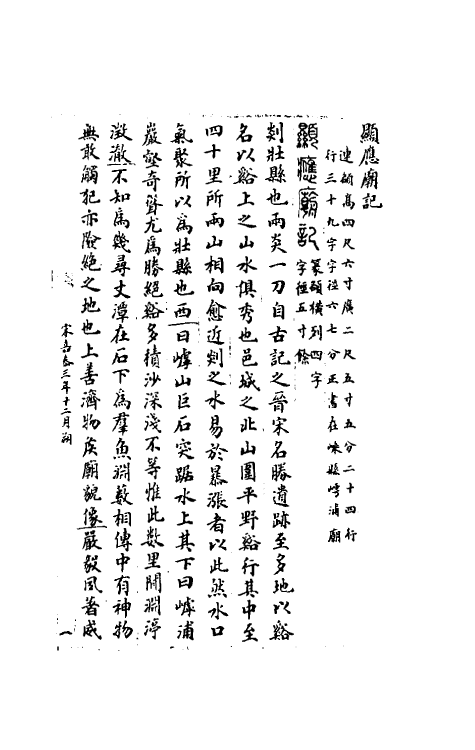 顯應廟記
連額高四尺六寸廣二尺五寸五分二十四行
行三十九字字徑六七分正書在嵊縣㟧浦廟
顯應廟記
篆額橫列四字
字徑五寸餘
剡壯縣也兩炎一刀自古記之晉宋名勝遺跡至多地以谿
名以谿上之山水俱秀也邑城之北山圍平野谿行其中至
四十里所兩山相向愈近剡之水易於暴漲者以此然水口
氣聚所以為壯縣也西一曰㟧山巨石突踞水上其下曰㟧浦
巖壑奇聳尤為勝絕谿多積沙深淺不等惟此數里間淵渟
澂澈不知為幾尋丈潭在石下為羣魚淵藪相傳中有神物
無敢觸犯亦險絕之地也上善濟物矦廟貌像嚴毅夙著威
宋嘉泰三年十二月朔
一